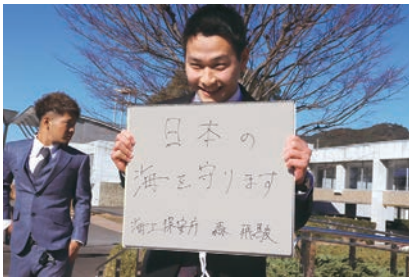 日本の
海を守ります
海上保安庁 森 飛駿